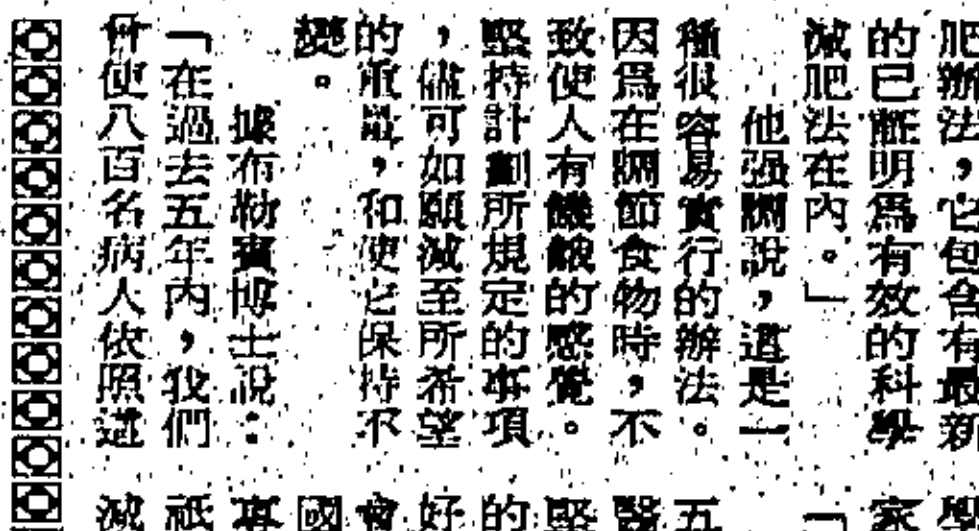 肥辦法，它包含有最新
的已證明爲有效的科學
減肥法在內。」
他强調說，這是一
種很容易實行的辦法。
因爲在調節食物時，不
致使人有饑餓的感覺。
堅持計劃所規定的事項
，儘可如願減至所希望
的重量，和使它保持不
變。
據布勒寶博士說：
「在過去五年內，我們
使八百名病人依照這
學
家
「
五
醫
堅
的
好
會
國
專
祇
減